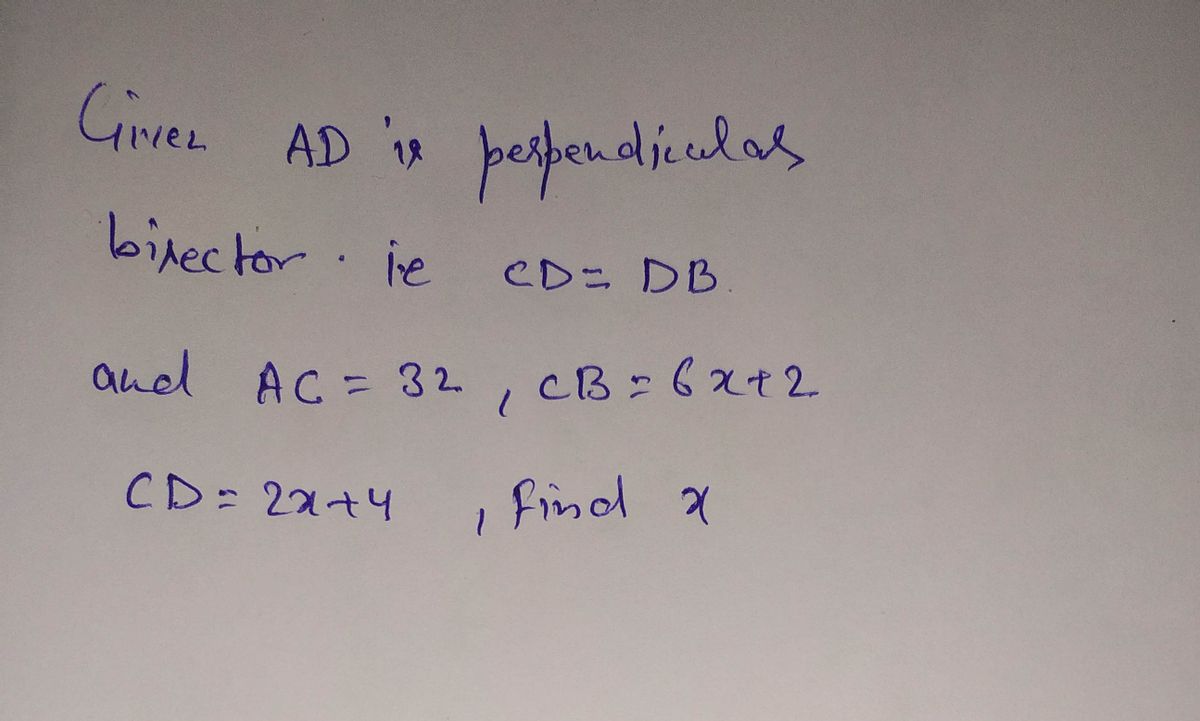 Given AD is perpendicular
bisector. ie CD = DB.
and AC = 32, CB = 6x+2
CD = 2x+4, find x